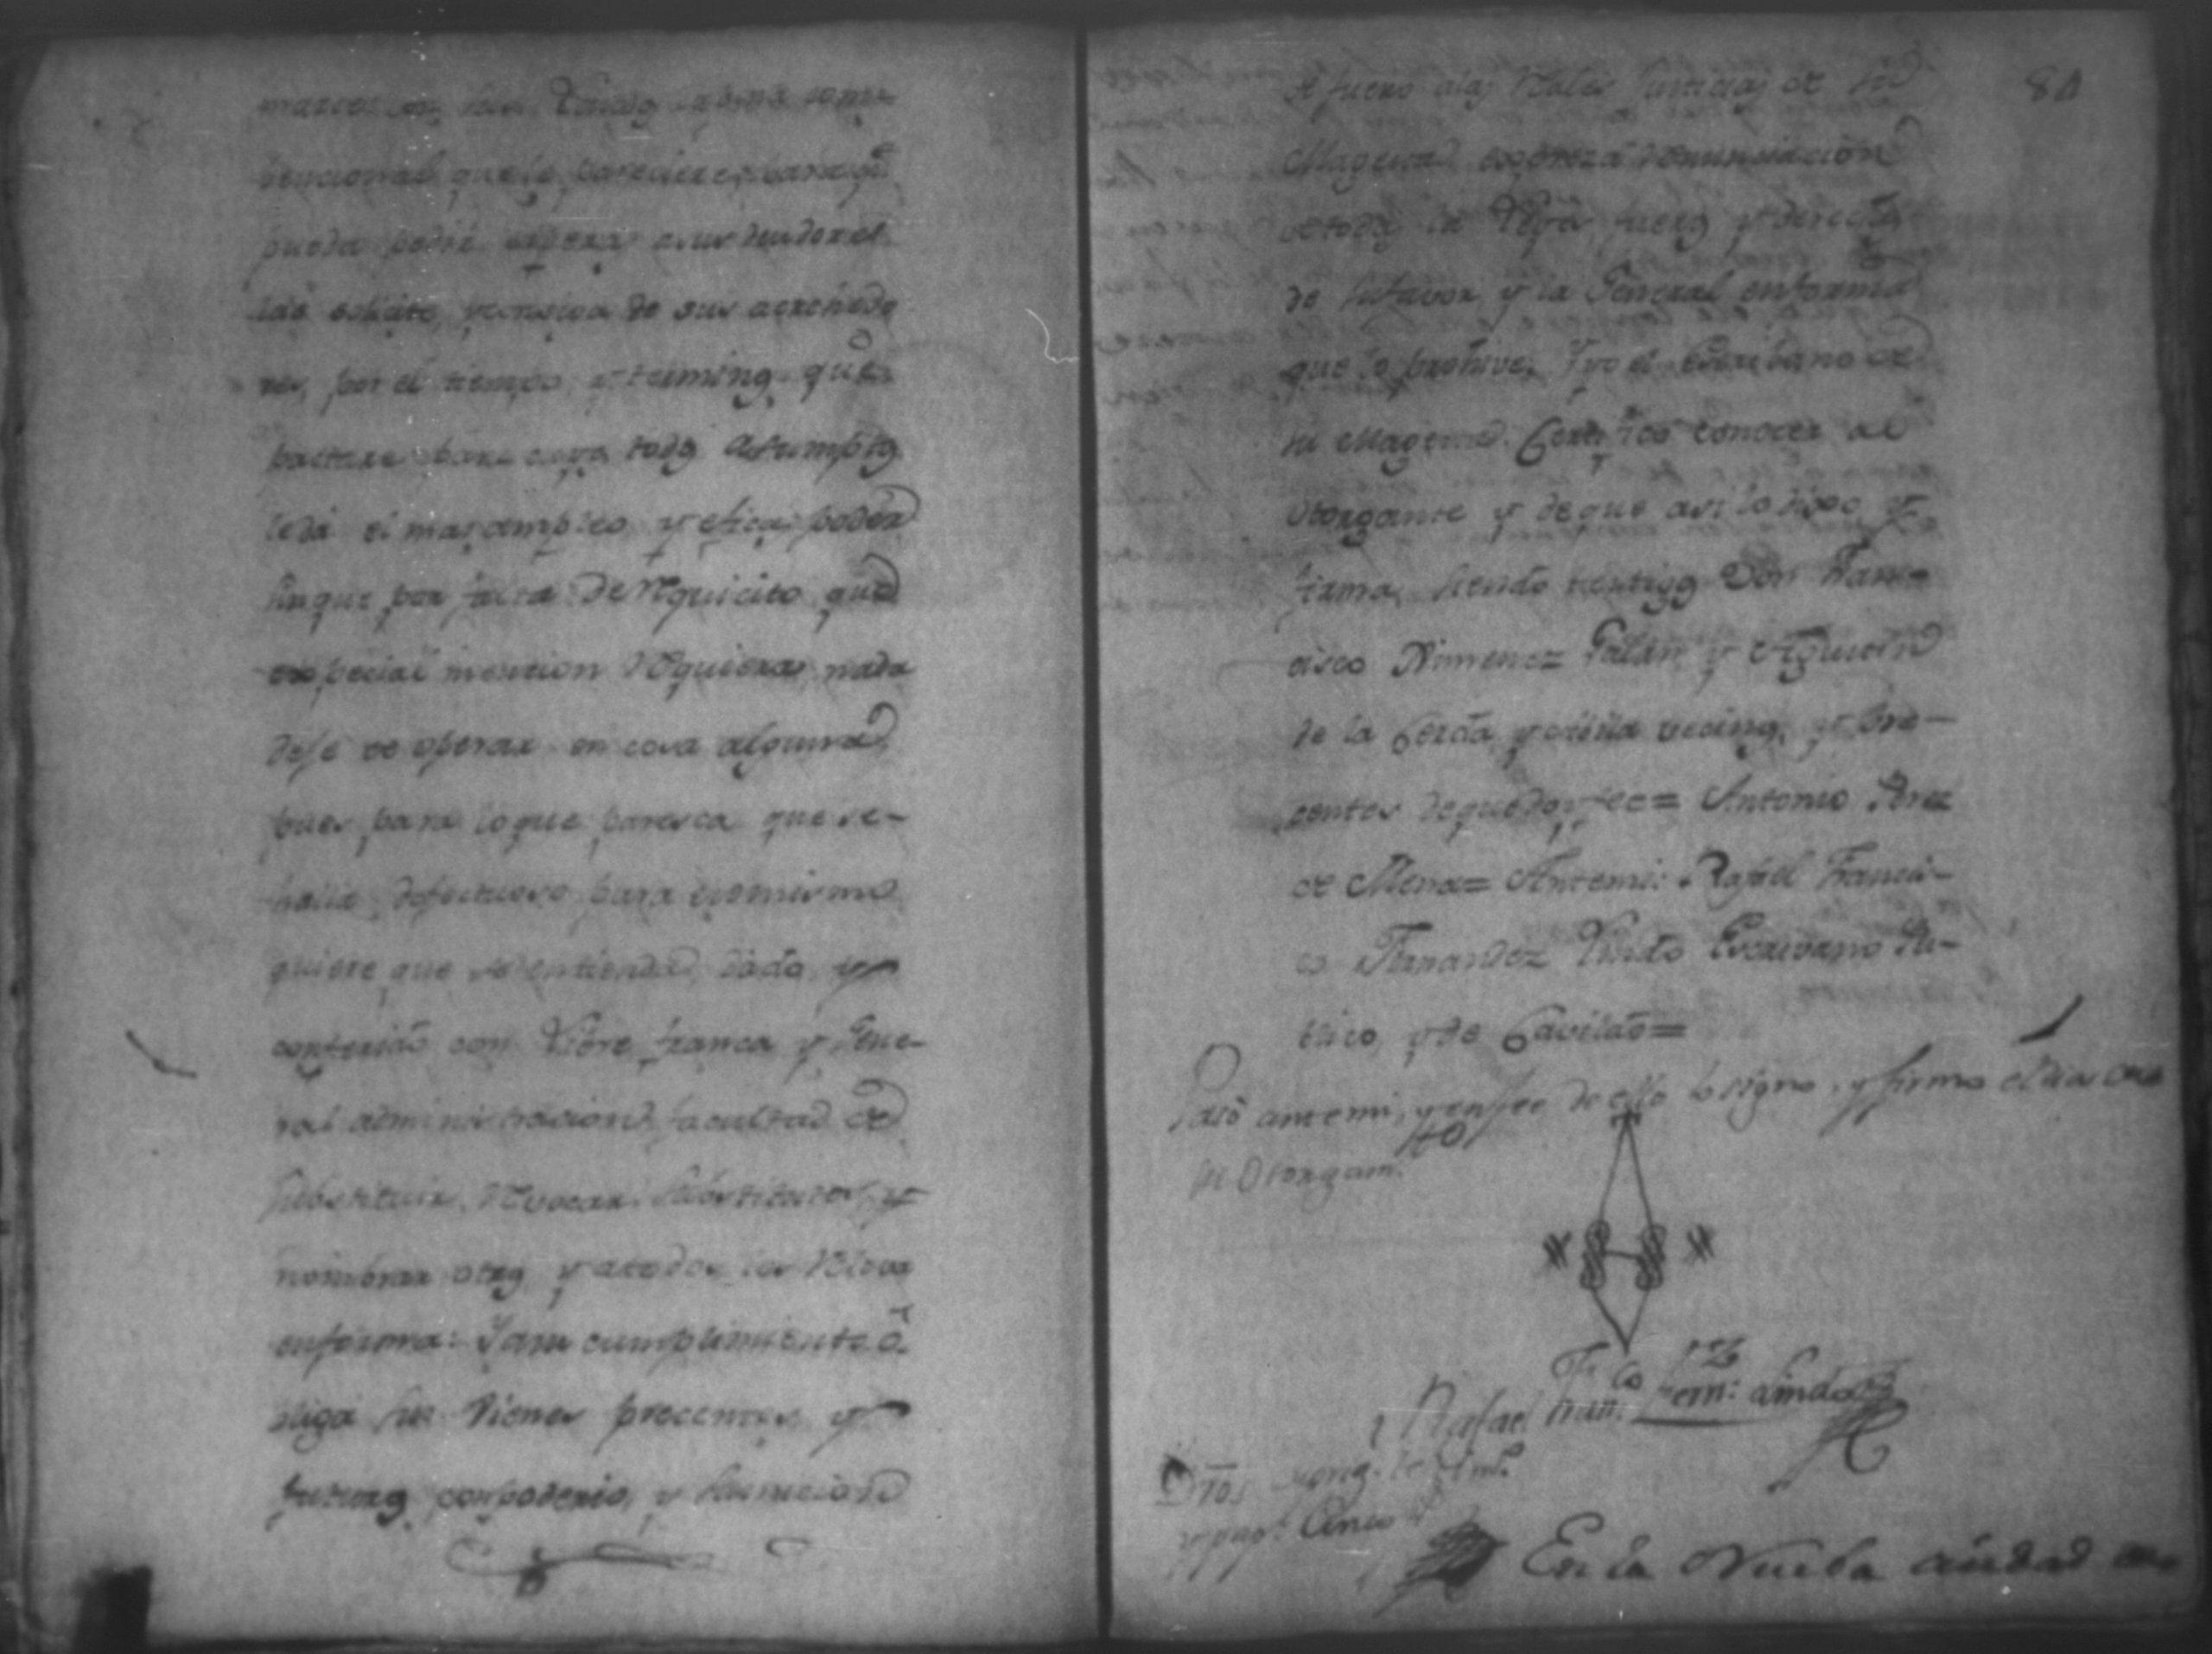 vencional que le pareciere, para q.e
pueda pedir espera a sus deudores
las solicite, y consiga de sus acrehedo
res, por el tiempo, y terminos que
bastare para cuyos todos Asumptos
le dá el mas amplio, y eficas poder
sin que por falta de requicito que
especial mencion requiera, nada
dese de operar en cosa alguna
pues para lo que paresca que se-
halla defectuoso para eso mismo
quiere que se entienda dado, y
conferido con libre franca y Gene-
ral administracion, facultad de
substituir, revocar substitutos, y
nombrar otros y a todos los releva
en forma: Y a su cumplimiento ó
bliga sus vienes precentes y
futuros, con poderio, y sumicion
84
de fuero a las Justicias de su
Magestad expresa renunciacion
de todas las Leyes fueros y derechos
de su favor y la General en forma
que lo prohive, Y yo el Escribano de
su Magestad Certifico conocer al
Otorgante y de que asi lo dixo y
firma, siendo testigos Don Fran-
cisco Ximenez Galan, y Agustin
de la Cerda, y vecinos, y pre-
centes de que doy fee= Antonio Perez
de Mena= Antemi: Rafael Francis-
co Fernandez Escrivano Pu-
blico, y de Cavildo=
Pasó ante mi, y en fee de ello lo signo, y firmo el dia de
su Otorgam.to
Rafael Fran.co Fern.z
D.ros
En la Nueba ciudad de